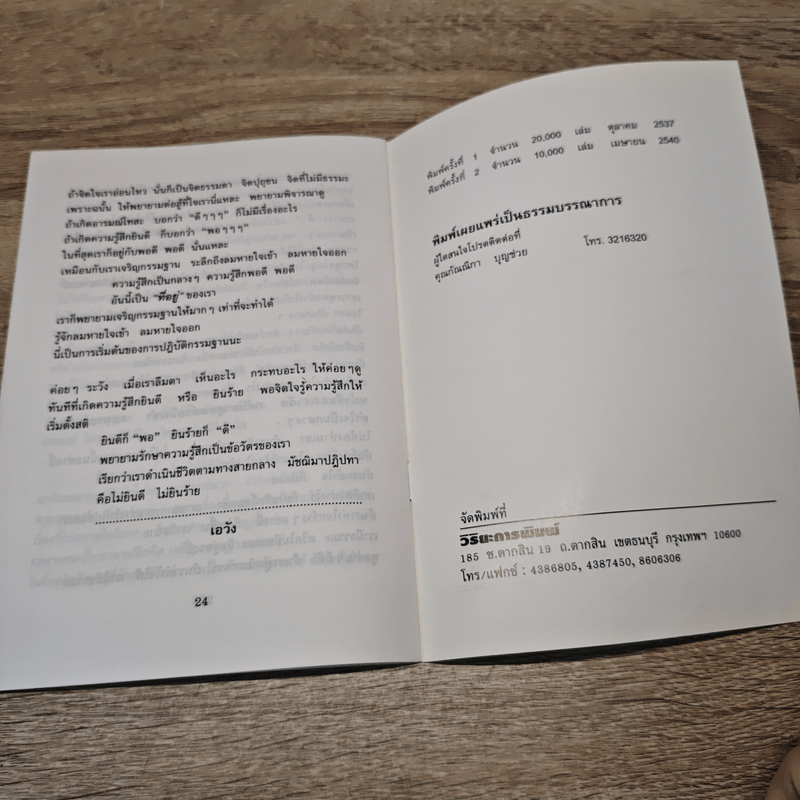 ถ้าจิตใจเราอ่อนไหว นั่นก็เป็นจิตธรรมดา จิตปุถุชน จิตที่ไม่มีธรรมะ
เพราะฉะนั้น ให้พยายามต่อสู้ที่ใจเรานี่แหละ พยายามพิจารณาดู
ถ้าเกิดอารมณ์โทสะ บอกว่า “ดีๆๆๆ” ก็ไม่มีเรื่องอะไร
ถ้าเกิดความรู้สึกยินดี ก็บอกว่า “พอๆๆๆ”
ในที่สุดเราก็อยู่กับพอดี พอดี นั่นแหละ
เหมือนกับเราเจริญกรรมฐาน ระลึกถึงลมหายใจเข้า ลมหายใจออก
ความรู้สึกเป็นกลางๆ ความรู้สึกพอดี พอดี
อันนี้เป็น “ที่อยู่” ของเรา
เราก็พยายามเจริญกรรมฐานให้มากๆ เท่าที่จะทำได้
รู้จักลมหายใจเข้า ลมหายใจออก
นี่เป็นการเริ่มต้นของการปฏิบัติกรรมฐานนะ
ค่อยๆ ระวัง เมื่อเราลืมตา เห็นอะไร กระทบอะไร ให้ค่อยๆดู
ทันทีที่เกิดความรู้สึกยินดี หรือ ยินร้าย พอจิตใจรู้ความรู้สึกให้
เริ่มตั้งสติ
ยินดีก็ “พอ” ยินร้ายก็ “ดี”
พยายามรักษาความรู้สึกเป็นข้อวัตรของเรา
เรียกว่าเราดำเนินชีวิตตามทางสายกลาง มัชฌิมาปฏิปทา
คือไม่ยินดี ไม่ยินร้าย
เอวัง
24
พิมพ์ครั้งที่ 1 จำนวน 20,000 เล่ม ตุลาคม 2537
พิมพ์ครั้งที่ 2 จำนวน 10,000 เล่ม เมษายน 2540
พิมพ์เผยแพร่เป็นธรรมบรรณาการ
ผู้ใดสนใจโปรดติดต่อที่
คุณกัณณิกา บุญช่วย โทร. 3216320
จัดพิมพ์ที่
วิริยะการพิมพ์
185 ซ.ตากสิน 19 ถ.ตากสิน เขตธนบุรี กรุงเทพฯ 10600
โทร/แฟกซ์ : 4386805, 4387450, 8606306